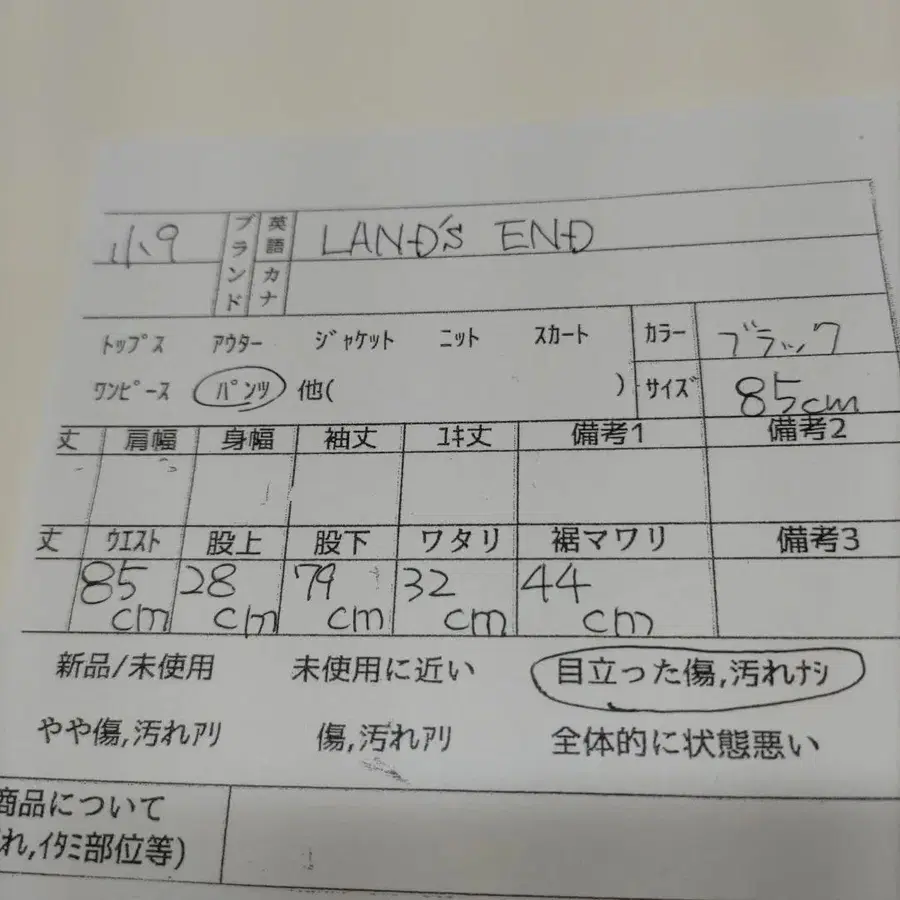 小9 ブランド 英語 LAND'S END
カナ
トップス アウター ジャケット ニット スカート カラー ブラック
ワンピース パンツ 他( ) サイズ 85cm
丈 肩幅 身幅 袖丈 ユキ丈 備考1 備考2
丈 ウエスト 股上 股下 ワタリ 裾マワリ 備考3
85cm 28cm 79cm 32cm 44cm
新品/未使用 未使用に近い 目立った傷,汚れナシ
やや傷,汚れアリ 傷,汚れアリ 全体的に状態悪い
商品について
れ,イタミ部位等)